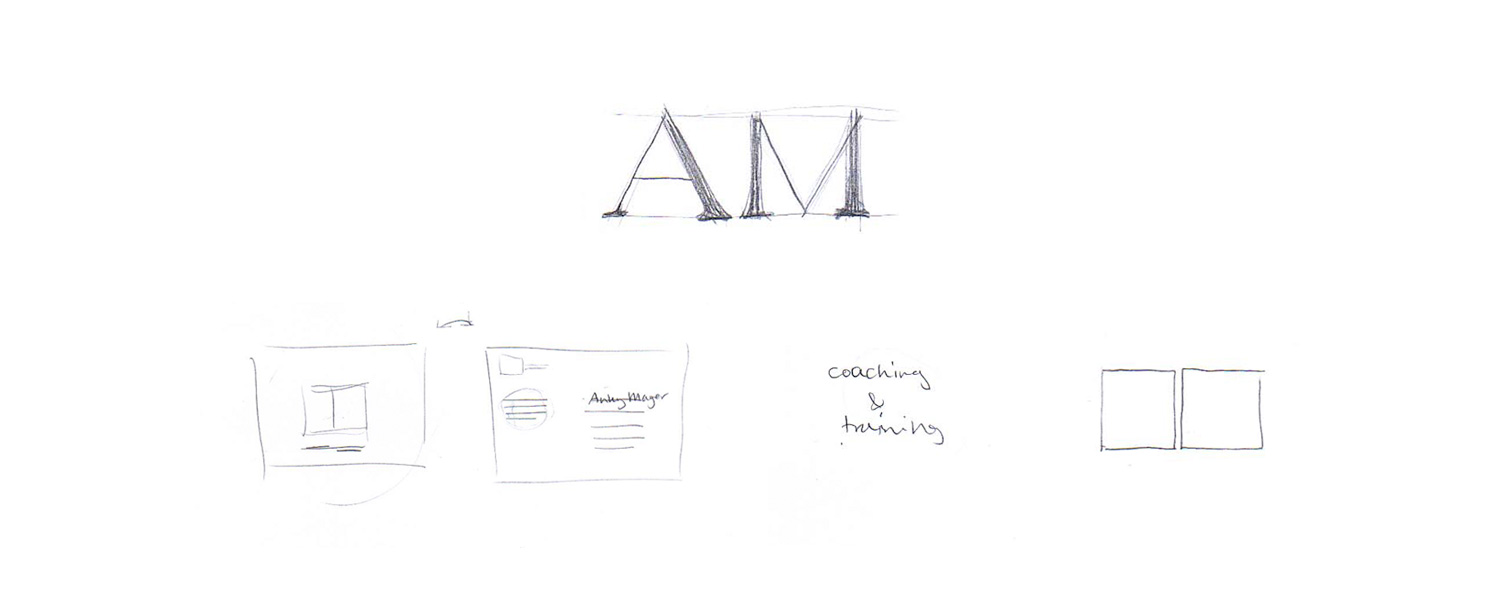 AM
Mayer
coaching
&
training